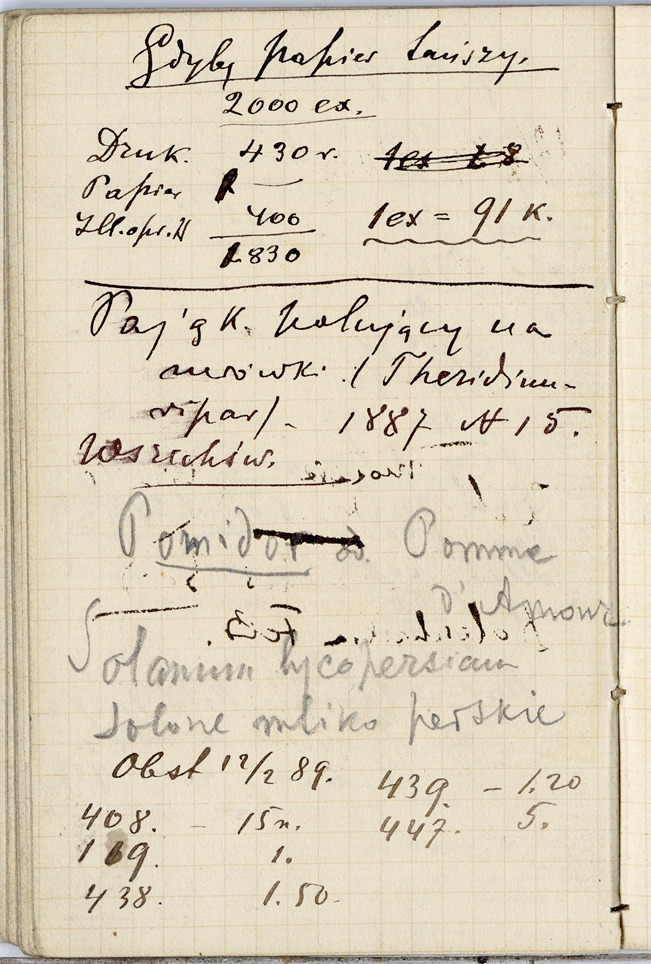 Gdyby papier tańszy.
2000 ex.
Druk. 430 r.
Papier 1 —
Ill. opr. 400 1ex = 91 K.
1830
Pająk polujący na
mrówki. (Theridium
ripar) - 1887 N 15.
Wszechśw.
Pomidor Pomme
d'Amour
Solanum lycopersicum
Solone mliko perskie
Obst 12/2 89. 439 - 1.20
408. - 15 n. 447. 5.
169. 1.
438. 1.50.